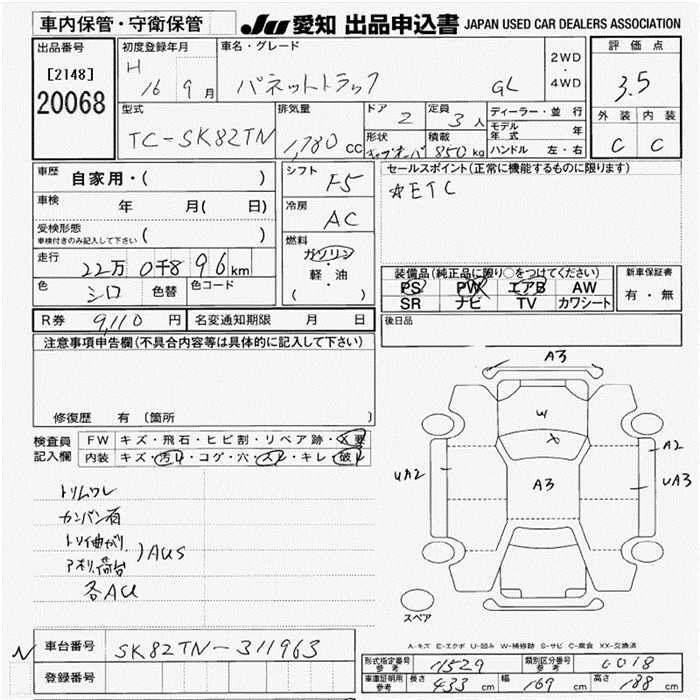 車内保管・守衛保管 JU 愛知 出品申込書 JAPAN USED CAR DEALERS ASSOCIATION
出品番号 初度登録年月 車名・グレード 2WD・4WD 評価点
[2148] H 16 9月 バネットトラック GL 3.5
20068
型式 排気量 ドア 定員 ディーラー・並行 外装 内装
TC-SK82TN 1,780 CC 2 3人 モデル年式 年 C C
形状 積載 850kg ハンドル 左・右
車歴 自家用・( ) シフト F5 セールスポイント(正常に機能するものに限ります)
☆ETC
車検 年 月( 日) 冷房 AC
受検形態 車検付きのみ記入して下さい ( )
燃料 ガソリン 軽・油 ( )
走行 22万 0千8 96 km
装備品(純正品に限り○をつけてください) 新車保証書
PS PW エアB AW 有・無
色 シロ 色替 色コード SR ナビ TV カワシート
R券 9,110 円 名変通知期限 月 日 後日品
注意事項申告欄(不具合内容等は具体的に記入して下さい)
修復歴 有 (箇所
検査員記入欄 FW キズ・飛石・ヒビ割・リペア跡・X要
内装 キズ・汚レ・コゲ・穴・スレ・キレ・破レ
A3
W
X
A2
UA2 A3 UA3
トリムワレ
カンバン有
トリイ曲がり
アオリ、荷台 )AUS
各AU
スペア
A-キズ E-エクボ U-凹み W-補修跡 S-サビ C-腐食 XX-交換済
N 車台番号 SK82TN-311963
登録番号
形式指定番号 参考 11529 類別区分番号 参考 0018
車庫証明用 参考 長さ 433 cm 幅 169 cm 高さ 188 cm